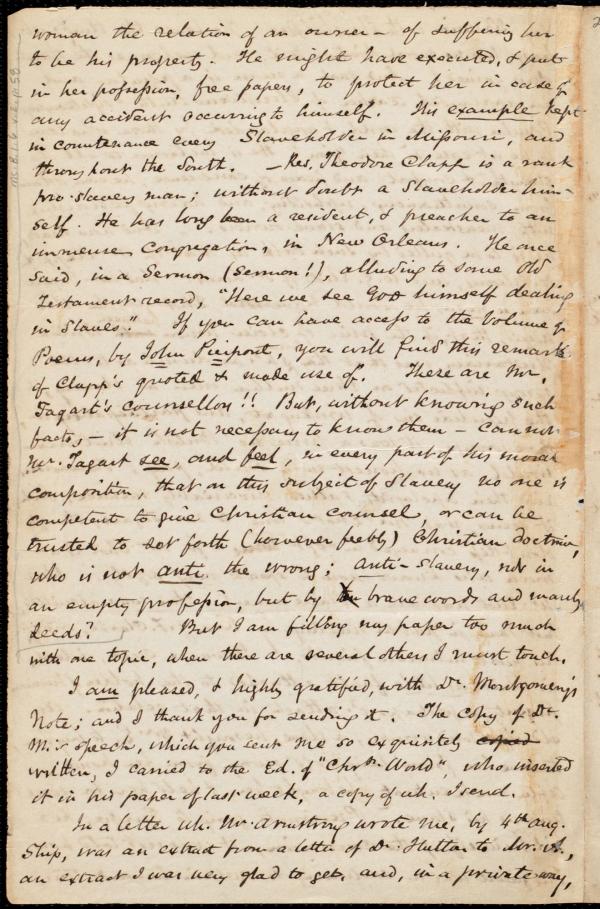 woman the relation of an owner – of suffering her
to be his property. He might have executed, & put
in her possession, free papers, to protect her in case of
any accident occurring to himself. His example kept
in countenance every Slaveholder in Missouri, and
throughout the South. – Rev. Theodore Clapp is a rank
pro-slavery man; without doubt a Slaveholder him-
self. He has long been a resident, & preacher to an
immense Congregation, in New Orleans. He once
said, in a Sermon (Sermon!), alluding to some Old
Testament record, "Here we see God himself dealing
in Slaves." If you can have access to the Volume of
Poems, by John Pierpont, you will find this remark
of Clapp's quoted & made use of. These are Mr.
Tagart's counsellors!! But, without knowing such
facts, – it is not necessary to know them – can not
Mr. Tagart see, and feel, in every part of his moral
composition, that on this subject of Slavery no one is
competent to give Christian counsel, or can be
trusted to set forth (however feebly) Christian doctrine,
who is not anti the wrong; anti-slavery, not in
an empty profession, but by brave words and manly
deeds? But I am filling my paper too much
with one topic, when there are several others I must touch.
I am pleased, & highly gratified, with Dr. Montgomery's
Note; and I thank you for sending it. The copy of Dr.
M.'s speech, which you sent me so exquisitely copied
written, I carried to the Ed. of "Chrn. World", who inserted
it in his paper of last week, a copy of wh. I send.
In a letter wh. Mr. Armstrong wrote me, by 4th Aug.
Ship, was an extract from a letter of Dr. Hutton to Mr. A.,
an extract I was very glad to get, and, in a private way,